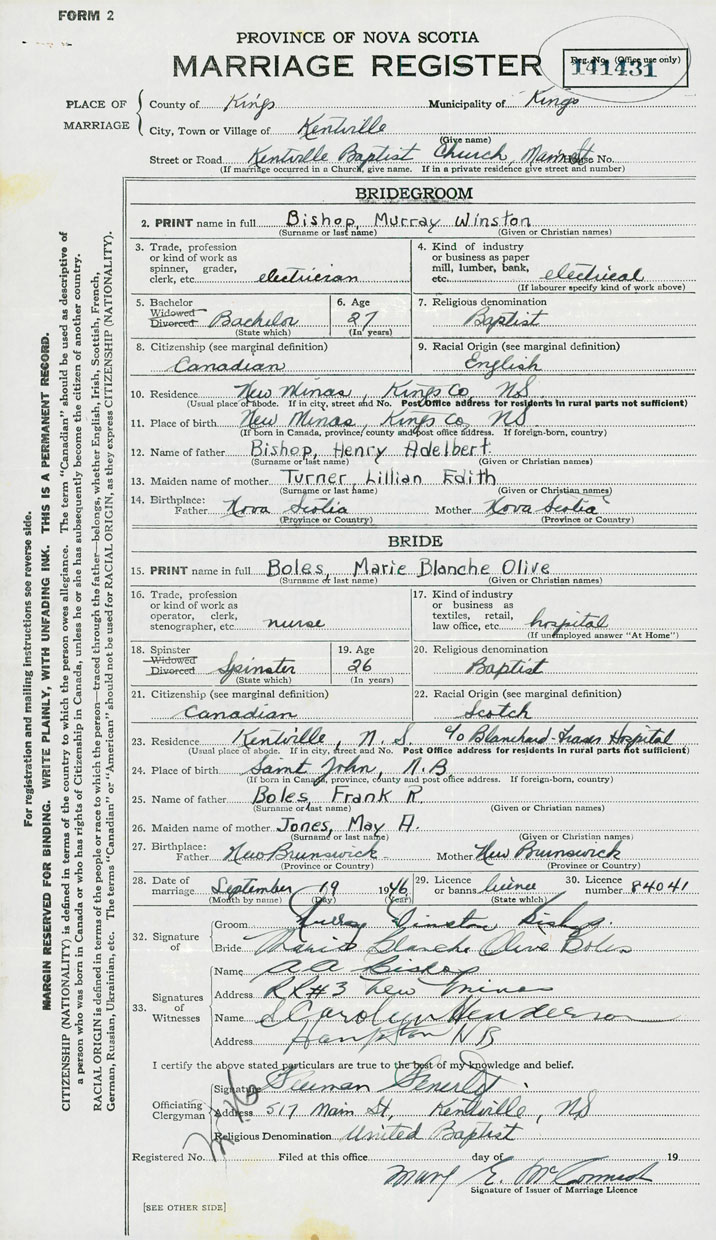 FORM 2
PROVINCE OF NOVA SCOTIA
MARRIAGE REGISTER
Reg. No. (Office use only)
141431
PLACE OF MARRIAGE
County of Kings Municipality of Kings
City, Town or Village of Kentville
(Give name)
Street or Road Kentville Baptist Church, Main St House No.
(If marriage occurred in a Church, give name. If in a private residence give street and number)
BRIDEGROOM
2. PRINT name in full Bishop, Murray Winston
(Surname or last name) (Given or Christian names)
3. Trade, profession or kind of work as spinner, grader, clerk, etc. electrician
4. Kind of industry or business as paper mill, lumber, bank, etc. electrical
(If labourer specify kind of work above)
5. Bachelor Widowed Divorced Bachelor
(State which)
6. Age 27
(In years)
7. Religious denomination
Baptist
8. Citizenship (see marginal definition)
Canadian
9. Racial Origin (see marginal definition)
English
10. Residence New Minas, Kings Co, NS
(Usual place of abode. If in city, street and No. Post Office address for residents in rural parts not sufficient)
11. Place of birth New Minas, Kings Co, NS
(If born in Canada, province, county and post office address. If foreign-born, country)
12. Name of father Bishop, Henry Adelbert
(Surname or last name) (Given or Christian names)
13. Maiden name of mother Turner, Lillian Edith
(Surname or last name) (Given or Christian names)
14. Birthplace:
Father Nova Scotia Mother Nova Scotia
(Province or Country) (Province or Country)
BRIDE
15. PRINT name in full Boles, Marie Blanche Olive
(Surname or last name) (Given or Christian names)
16. Trade, profession or kind of work as operator, clerk, stenographer, etc. nurse
17. Kind of industry or business as textiles, retail, law office, etc. hospital
(If unemployed answer "At Home")
18. Spinster Widowed Divorced Spinster
(State which)
19. Age 26
(In years)
20. Religious denomination
Baptist
21. Citizenship (see marginal definition)
Canadian
22. Racial Origin (see marginal definition)
Scotch
23. Residence Kentville, N.S. c/o Blanchard-Fraser Hospital
(Usual place of abode. If in city, street and No. Post Office address for residents in rural parts not sufficient)
24. Place of birth Saint John, N.B.
(If born in Canada, province, county and post office address. If foreign-born, country)
25. Name of father Boles, Frank R.
(Surname or last name) (Given or Christian names)
26. Maiden name of mother Jones, May A.
(Surname or last name) (Given or Christian names)
27. Birthplace:
Father New Brunswick Mother New Brunswick
(Province or Country) (Province or Country)
28. Date of marriage September 19 1946
(Month by name) (Day) (Year)
29. Licence or banns licence
(State which)
30. Licence number 84041
32. Signature of
Groom Murray Winston Bishop
Bride Marie Blanche Olive Boles
33. Signatures of Witnesses
Name A A Bishop
Address RR#3 New Minas
Name Carolyn Henderson
Address Hampton NB
I certify the above stated particulars are true to the best of my knowledge and belief.
Officiating Clergyman
Signature
Address 517 Main St, Kentville, NS
Religious Denomination United Baptist
Registered No. Filed at this office day of 19
Mary E. McCormick
Signature of Issuer of Marriage Licence
[SEE OTHER SIDE]
For registration and mailing instructions see reverse side.
MARGIN RESERVED FOR BINDING. WRITE PLAINLY, WITH UNFADING INK. THIS IS A PERMANENT RECORD.
CITIZENSHIP (NATIONALITY) is defined in terms of the country to which the person owes allegiance. The term "Canadian" should be used as descriptive of
a person who was born in Canada or who has rights of Citizenship in Canada, unless he or she has subsequently become the citizen of another country.
RACIAL ORIGIN is defined in terms of the people or race to which the person—traced through the father—belongs, whether English, Irish, Scottish, French,
German, Russian, Ukrainian, etc. The terms "Canadian" or "American" should not be used for RACIAL ORIGIN, as they express CITIZENSHIP (NATIONALITY).